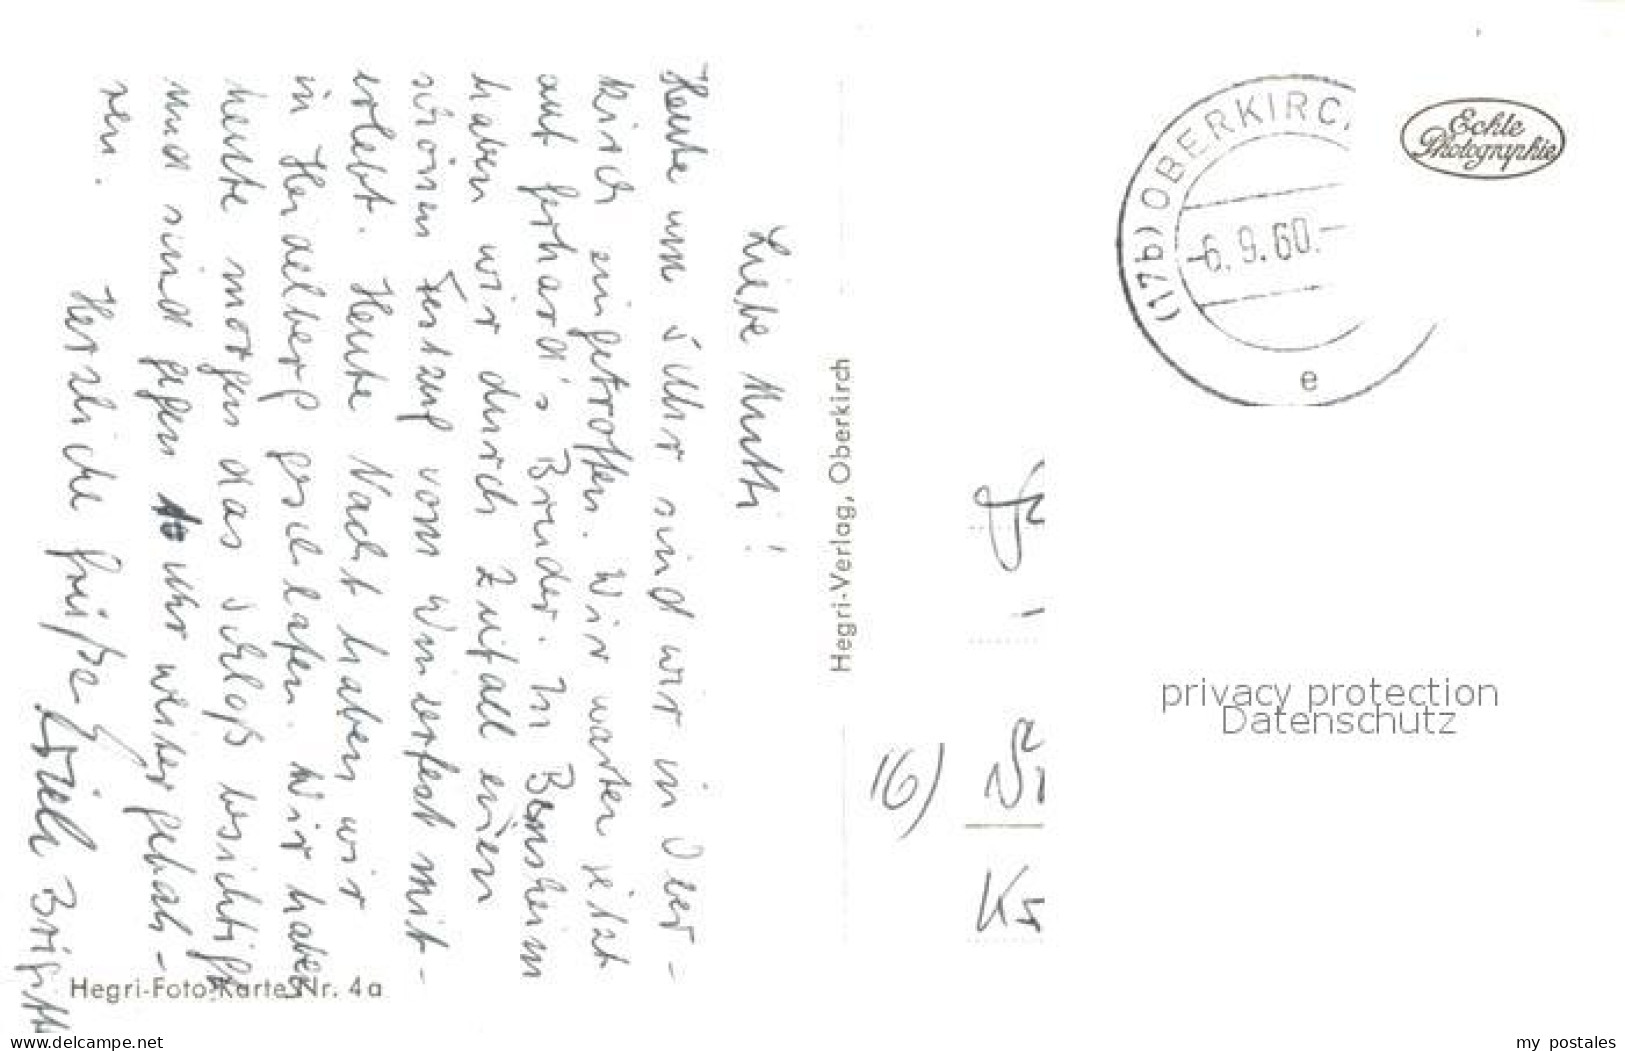 Liebe Mutti!
Heute um 5 Uhr sind wir in Ober-
kirch eingetroffen. Wir warten jetzt
auf Gerhard's Bruder. In Bensheim
haben wir durch Zufall einen
schönen Festzug vom Winzerfest mit-
erlebt. Heute Nacht haben wir
in Heidelberg geschlafen. Wir haben
heute morgen das Schloß besichtigt
und sind gegen 10 Uhr weiter gefah-
ren.
Herzliche Grüße
Brigitte
Hegri-Foto-Karte Nr. 4a
Hegri-Verlag, Oberkirch
(17b) OBERKIRC
-6.9.60.-
e
Echte
Photographie
16)
Kr
privacy protection
Datenschutz
www.delcampe.net
my_postales